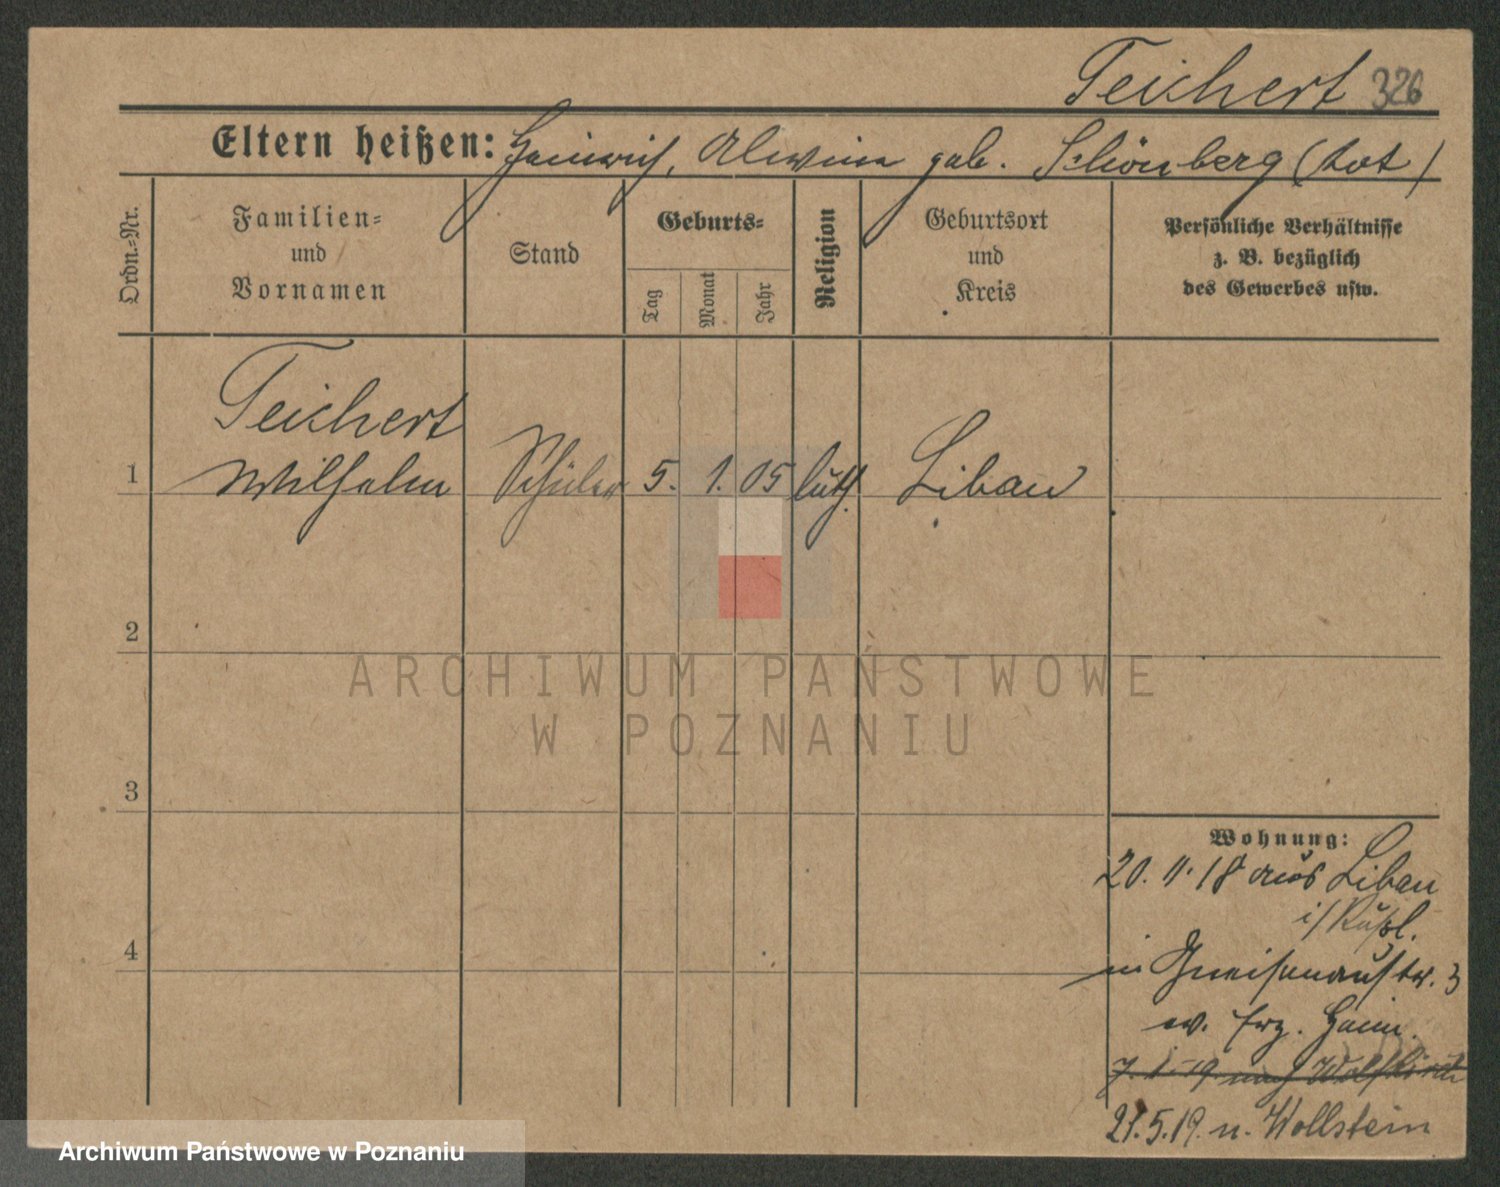 Teichert 326
Eltern heißen: Heinrich, Alwine geb. Schönberg (tot)
Ordn.-Nr.
Familien-
und
Vornamen
Stand
Geburts-
Tag
Monat
Jahr
Religion
Geburtsort
und
Kreis
Persönliche Verhältnisse
z. B. bezüglich
des Gewerbes usw.
Teichert
1 Wilhelm Schüler 5. 1. 05 luth. Libau
2
3
4
Wohnung:
20. 11. 18 aus Libau
i/Rußl.
in Gneisenaustr. 3
ev. Erz. Heim.
7. 1. 19 nach
21.5.19. n. Wollstein
ARCHIWUM PAŃSTWOWE
W POZNANIU
Archiwum Państwowe w Poznaniu